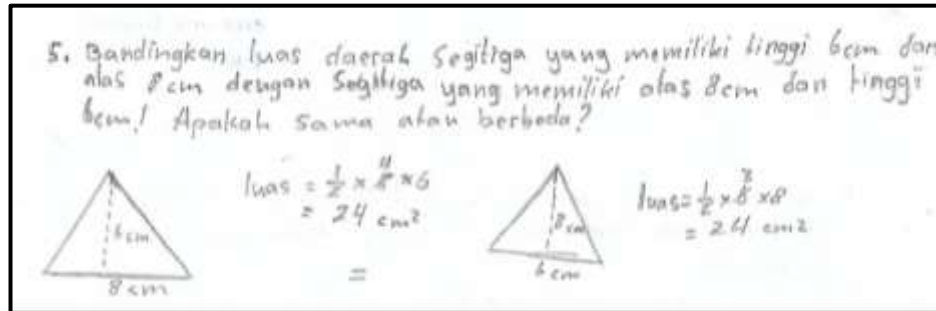 5. Bandingkan luas daerah Segitiga yang memiliki tinggi 6cm dan
alas 8cm dengan Segitiga yang memiliki alas 8cm dan tinggi
6cm! Apakah sama atau berbeda?
luas = 1/2 x 8 x 6
= 24 cm²
6cm
8cm
=
luas = 1/2 x 6 x 8
= 24 cm2
8cm
6cm